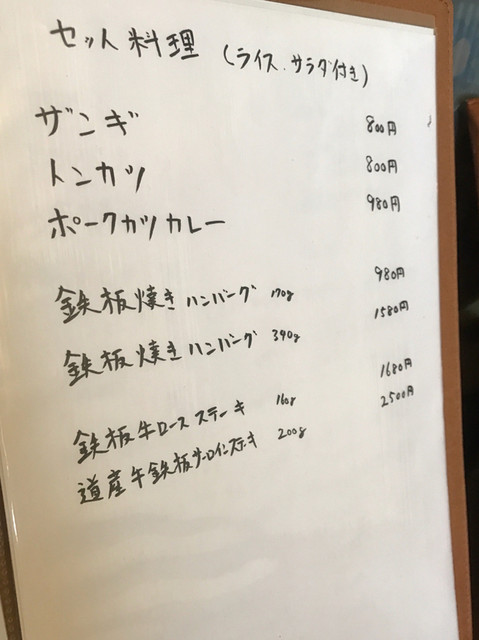 セット料理 (ライス、サラダ付き)
ザンギ 800円
トンカツ 800円
ポークカツカレー 980円
鉄板焼きハンバーグ 170g 980円
鉄板焼きハンバーグ 340g 1580円
鉄板牛ロースステーキ 160g 1680円
道産牛鉄板サーロインステーキ 200g 2500円